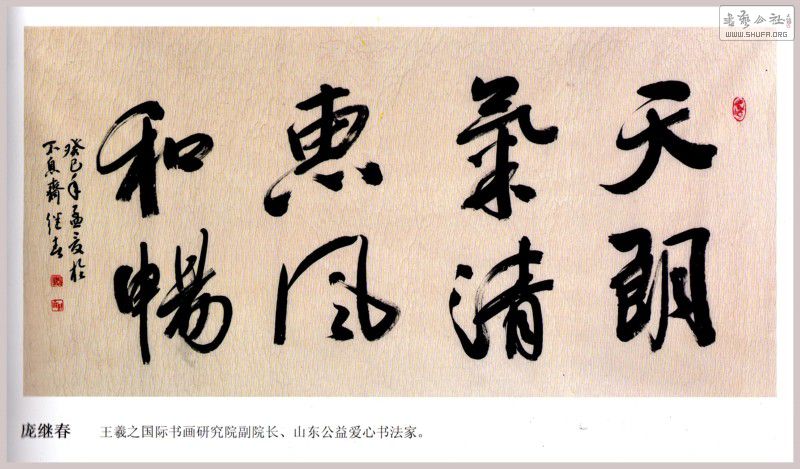 書藝公社
WWW.SHUFA.ORG
天朗
氣清
惠风
和暢
癸巳年孟夏於
不息齋继春
庞继春 王羲之国际书画研究院副院长、山东公益爱心书法家。